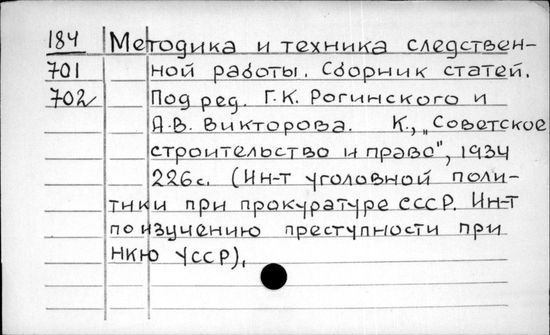 184 Методика и техника следствен-
701 ной работы. Сборник статей.
702 Под ред. Г.К. Рогинского и
А.В. Викторова. К., „Советское
строительство и право", 1934
226с. (Ин-т уголовной поли-
тики при прокуратуре СССР. Ин-т
по изучению преступности при
НКЮ УССР).